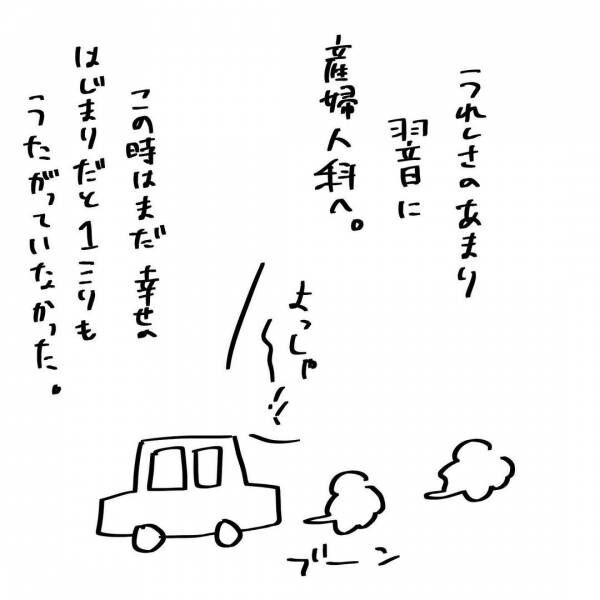 うれしさのあまり
翌日に
産婦人科へ。
この時はまだ幸せの
はじまりだと1ミリも
うたがっていなかった。
よっしゃ
〜!!
ブーン